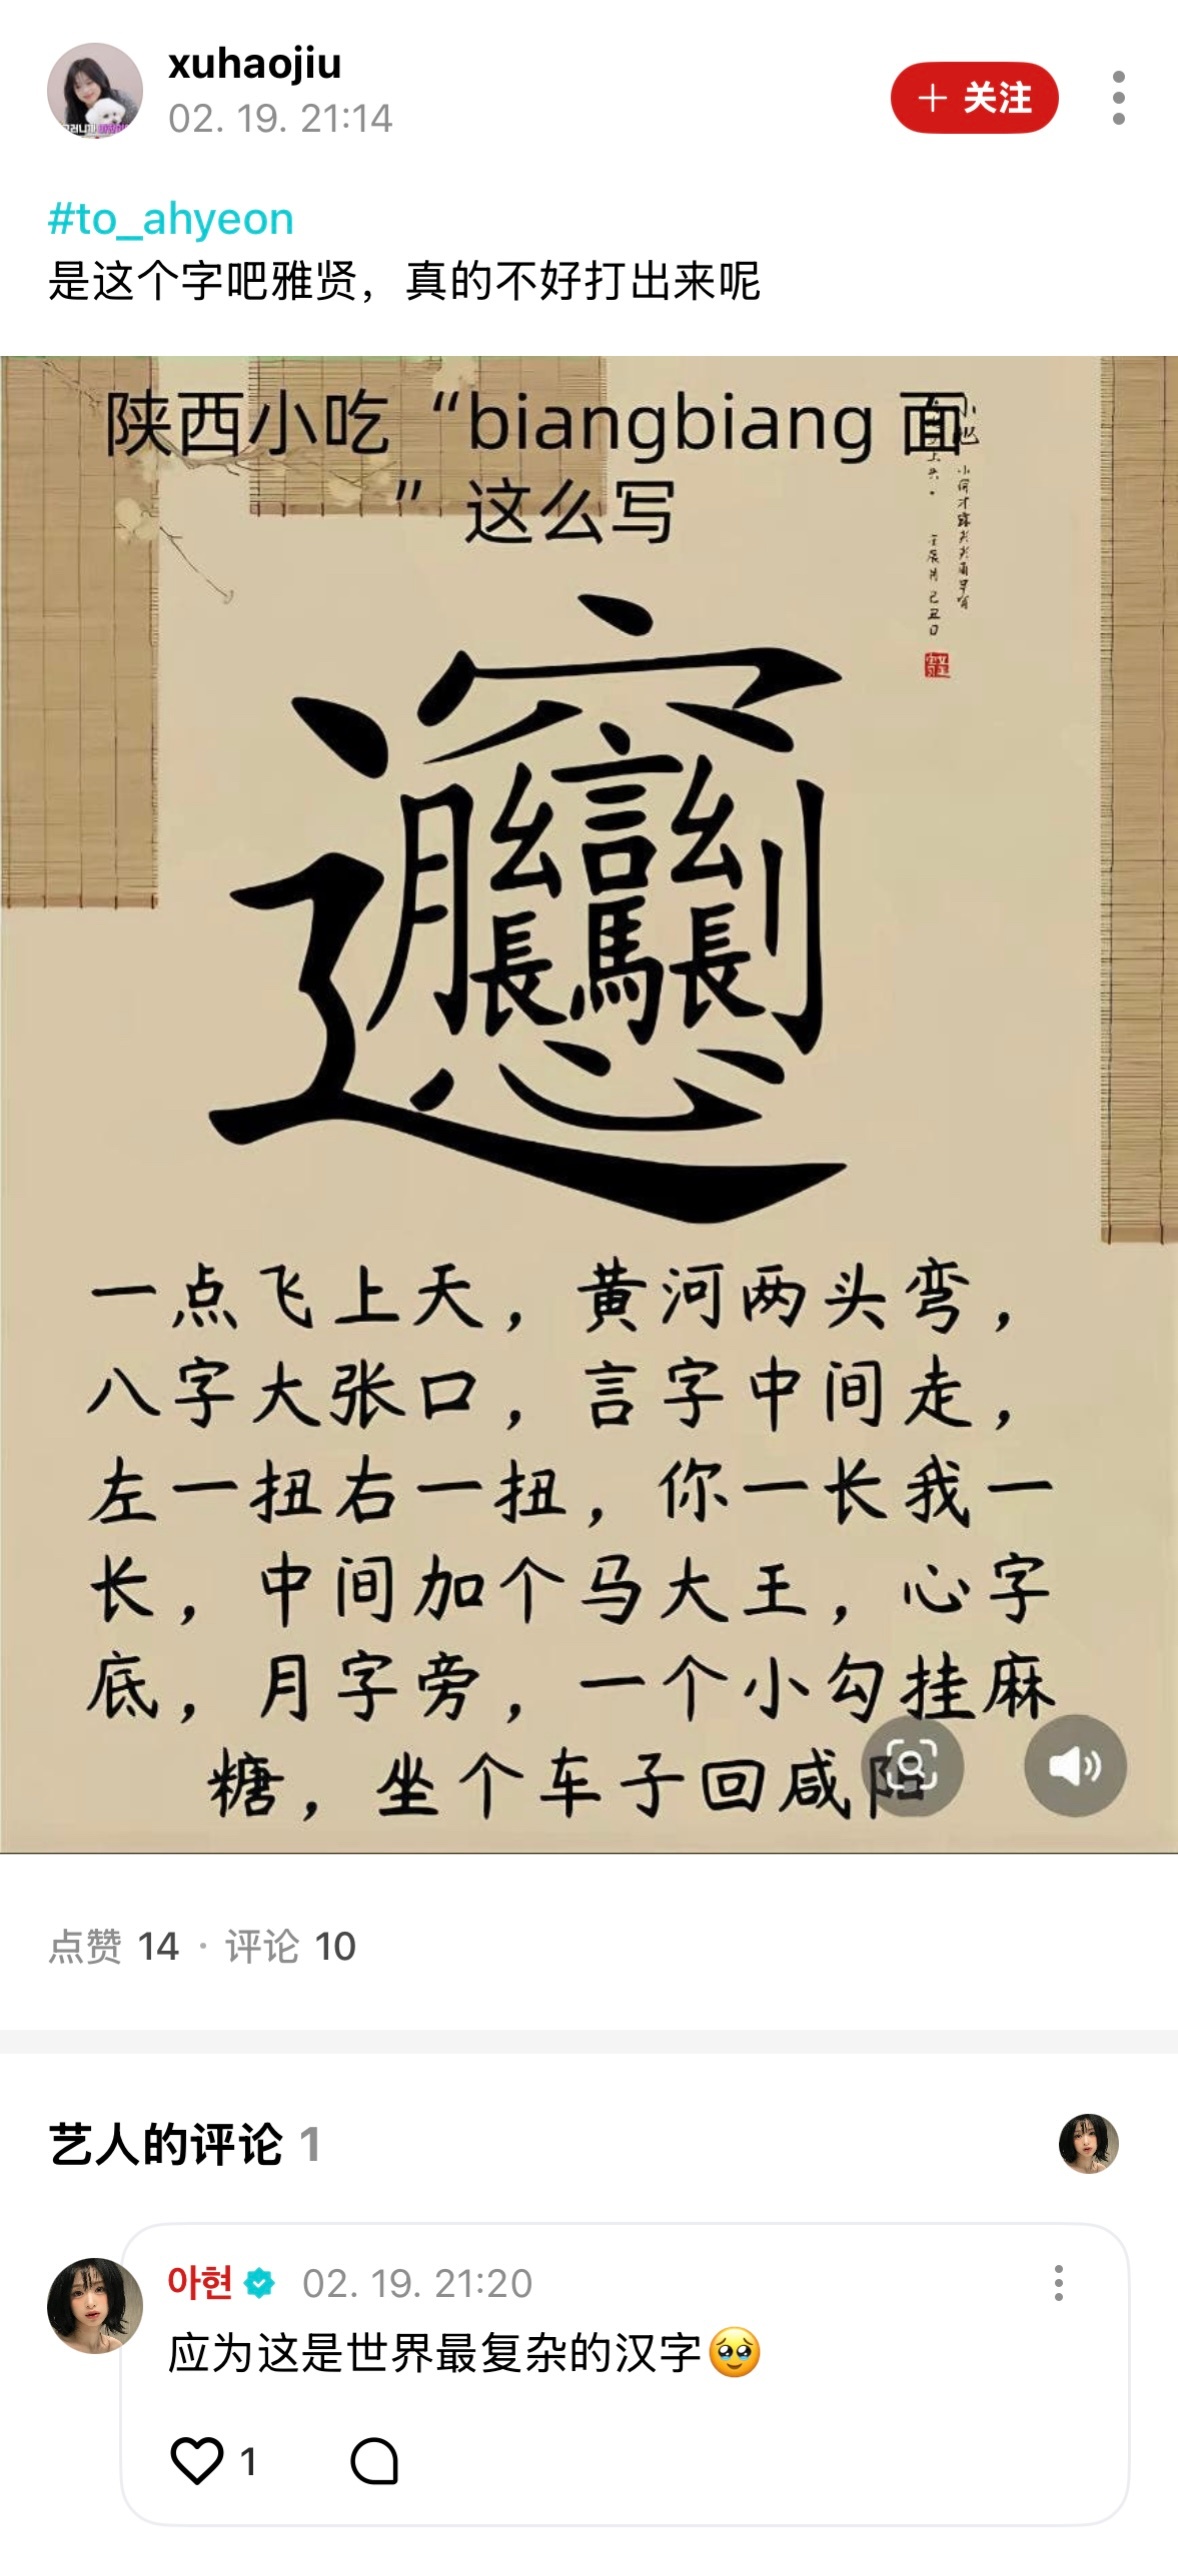 xuhaojiu
02. 19. 21:14
+ 关注
#to_ahyeon
是这个字吧雅贤，真的不好打出来呢
陕西小吃“biangbiang 面
”这么写
𰻞
一点飞上天，黄河两头弯，
八字大张口，言字中间走，
左一扭右一扭，你一长我一
长，中间加个马大王，心字
底，月字旁，一个小勾挂麻
糖，坐个车子回咸阳
点赞 14 · 评论 10
艺人的评论 1
아현 02. 19. 21:20
应为这是世界最复杂的汉字🥹
1